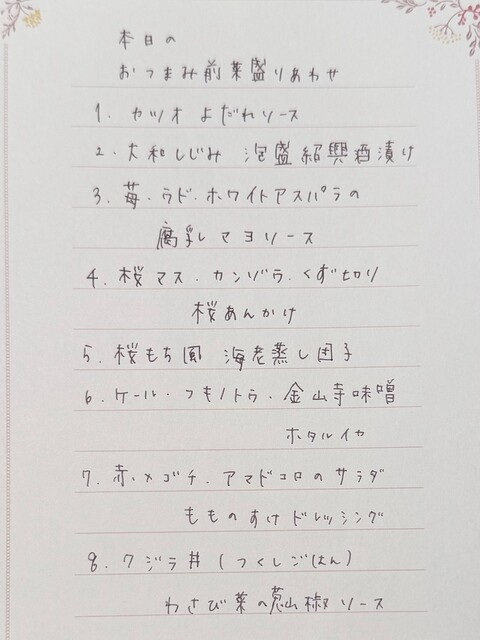 本日の
おつまみ前菜盛りあわせ
1. カツオ よだれソース
2. 大和しじみ 泡盛紹興酒漬け
3. 苺・ウド・ホワイトアスパラの
腐乳マヨソース
4. 桜マス・カンゾウ・くず切り
桜あんかけ
5. 桜もち風 海老蒸し団子
6. ケール・フキノトウ・金山寺味噌
ホタルイカ
7. 赤メゴチ・アマドコロのサラダ
もものすけドレッシング
8. クジラ丼(つくしごはん)
わさび菜の葱山椒ソース